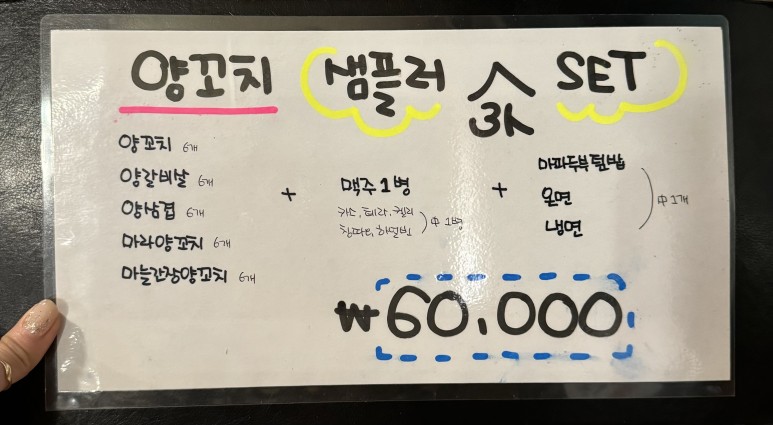 양꼬치 샘플러 SET
양꼬치 6개
양갈비살 6개
양삼겹 6개
마라양꼬치 6개
마늘간장양꼬치 6개
+
맥주 1병
카스, 테라, 켈리
칭따오, 하얼빈
中 1병
+
마파두부덮밥
온면
냉면
中 1개
₩60,000